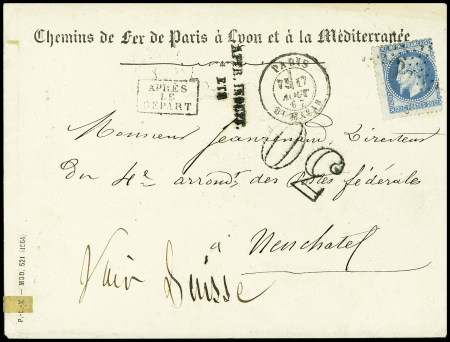 Chemins de Fer de Paris à Lyon et à la Méditerranée
APRÈS
LE
DÉPART
AFFR. INSUFF.
PARIS
17
AOUT
67
Monsieur Jeanrenaud Directeur
du 4e arrondt des Postes fédérales
à Neuchatel
Voir Suisse
30